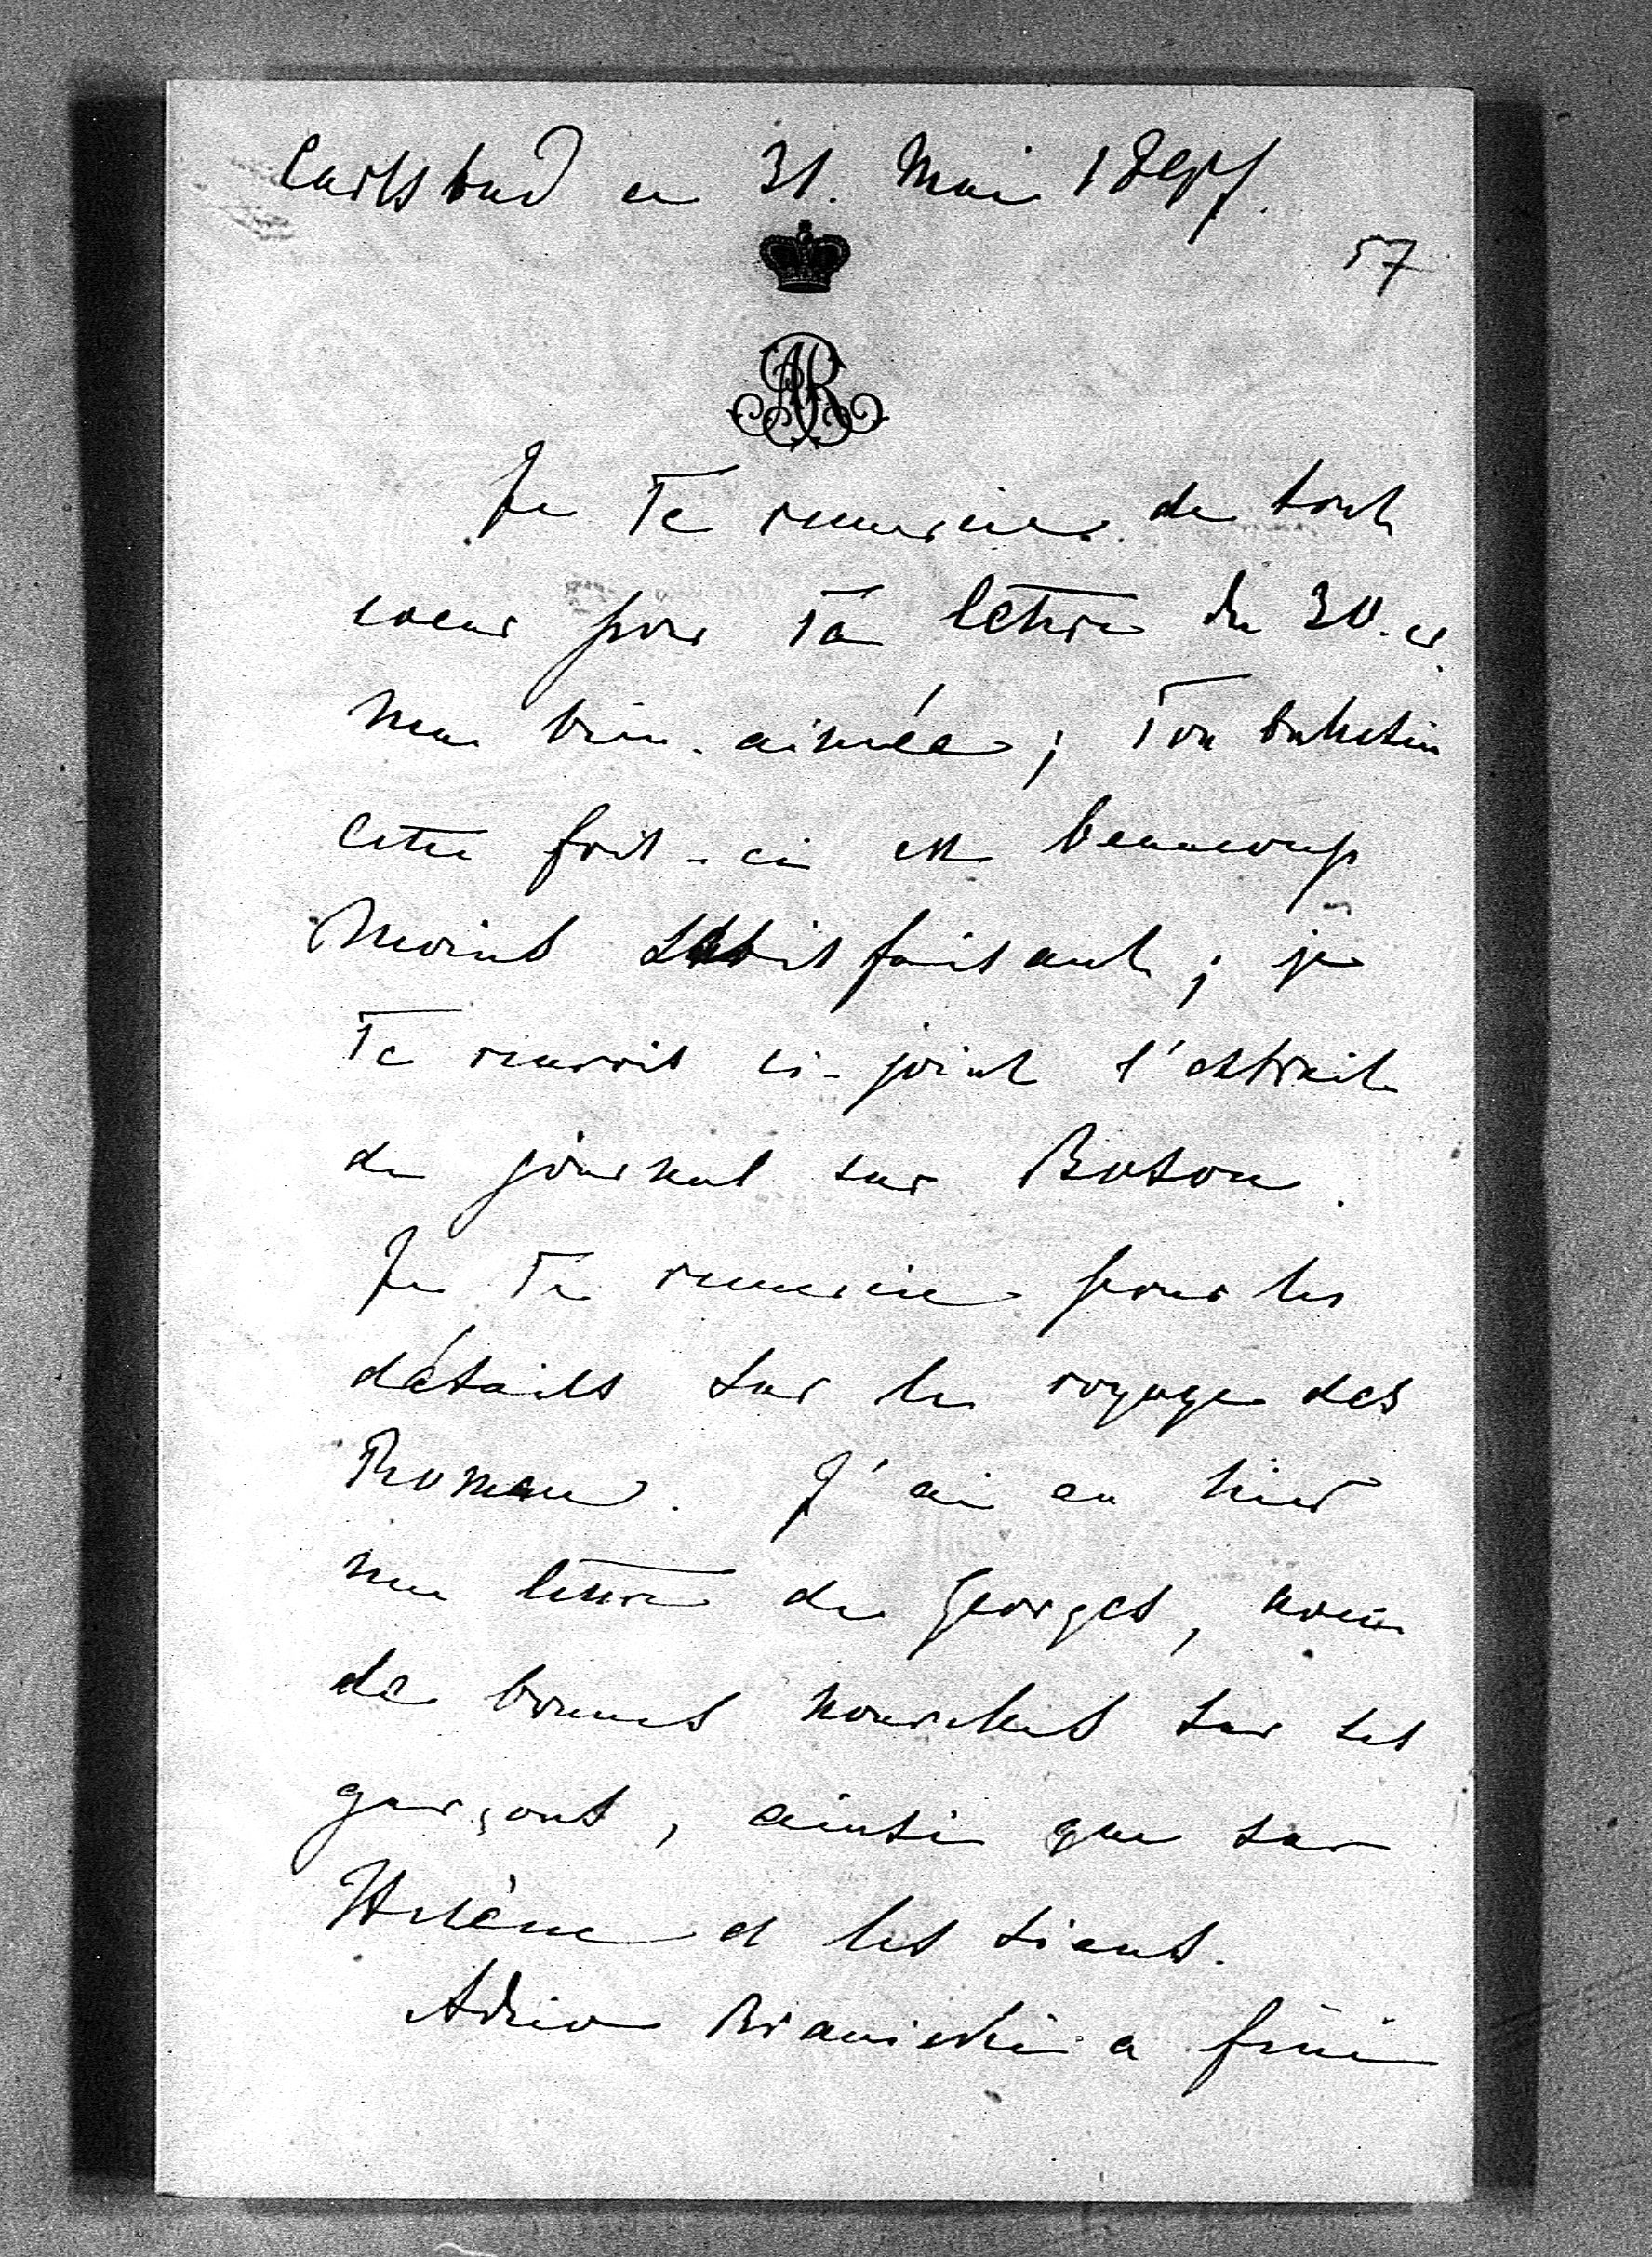 Carlsbad ce 31. Mai
57
AR
Je Te remercie de tout
coeur pour Ta lettre du 30. ct
ma bien-aimée; Ton bulletin
cette fois-ci est beaucoup
moins satisfaisant; je
Te renvois ci-joint l'extrait
de journal sur Boson.
Je Te remercie pour les
détails sur le voyage des
Roman. J'ai eu hier
une lettre de Georges, avec
de bonnes nouvelles sur ses
garçons, ainsi que sur
Hélène et les siens.
Branicki a fini